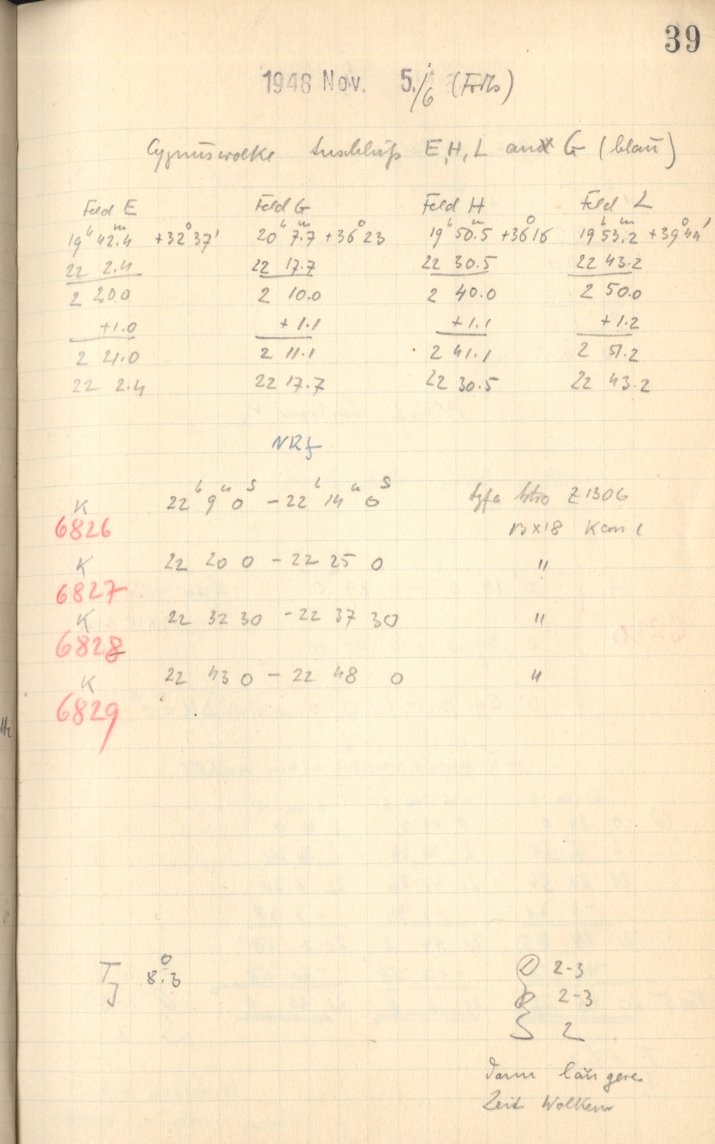 39
1948 Nov. 5./6
Cygnuswolke Anschluß E, H, L and G (blau)
Feld E Feld G Feld H Feld L
19ʰ 42.4ᵐ +32° 37' 20ʰ 7.7ᵐ +36° 23 19ʰ 50.5ᵐ +36° 16 19ʰ 53.2ᵐ +39° 44'
22 2.4 22 17.7 22 30.5 22 43.2
2 20.0 2 10.0 2 40.0 2 50.0
+1.0 +1.1 +1.1 +1.2
2 21.0 2 11.1 2 41.1 2 51.2
22 2.4 22 17.7 22 30.5 22 43.2
NRf
K 22ʰ 9ᵐ 0ˢ – 22ʰ 14ᵐ 0ˢ Agfa Astro Z1306
6826 13x18 Kam l
K 22 20 0 – 22 25 0 "
6827
K 22 32 30 – 22 37 30 "
6828
K 22 43 0 – 22 48 0 "
6829
T 8.3° 2-3
J 2-3
S 2
dann längere
Zeit Wolken